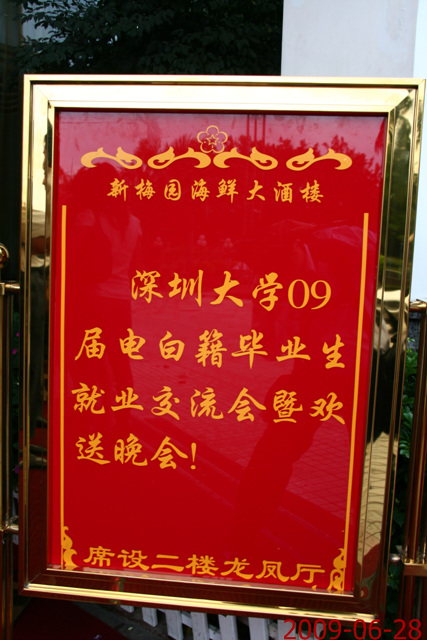 新梅园海鲜大酒楼
深圳大学09
届电白籍毕业生
就业交流会暨欢
送晚会!
席设二楼龙凤厅
2009-06-28